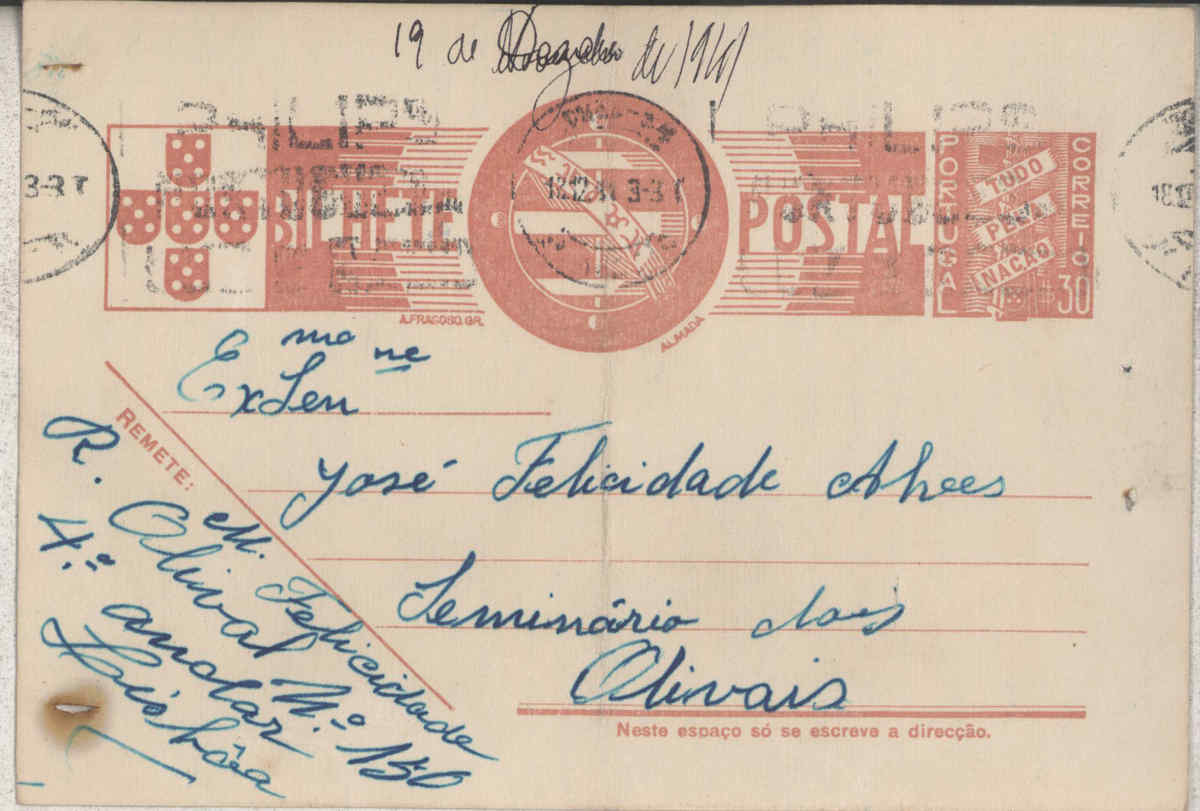 19 de de 1941
PHILIPS
PHILIPS
3-8 T
18.12.41 3-8 T
18.12
BILHETE
POSTAL
PORTUGAL
CORREIO
TUDO
PELA
NAÇÃO
30
A. FRAGOSO. GR.
ALMADA
Ex mo Sen ne
José Felicidade Alves
Seminário dos
Olivais
Neste espaço só se escreve a direcção.
REMETE:
M. Felicidade
R. Olival N.º 150
4.º andar
Lisbôa